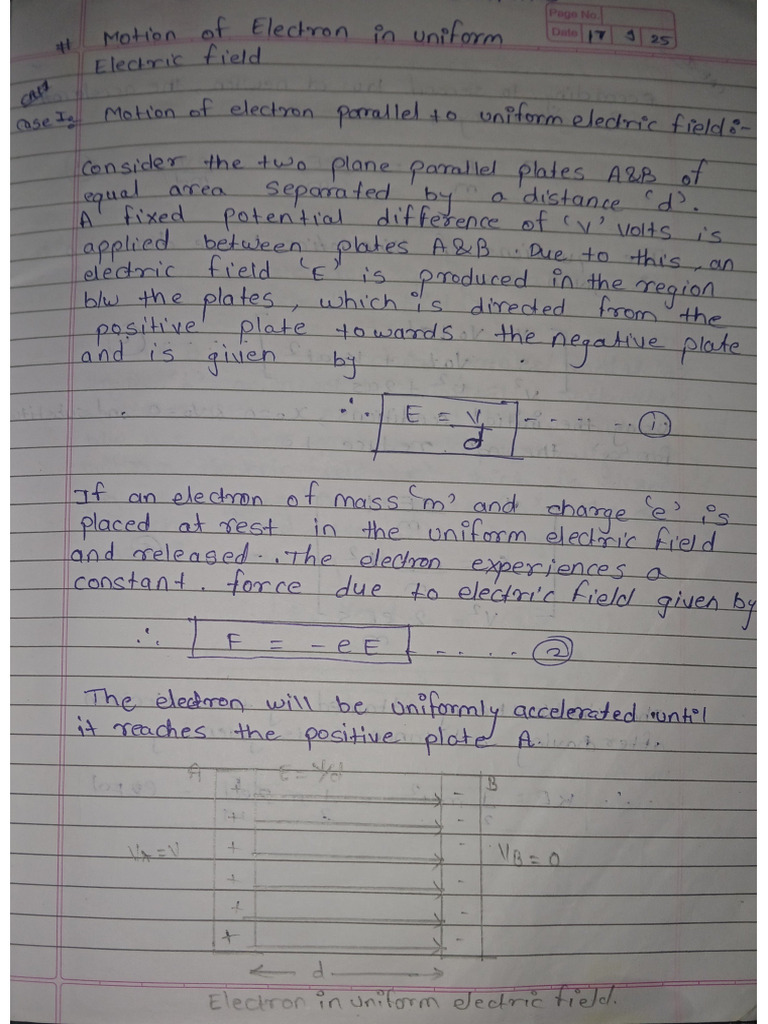 Page No.
Date 17 9 25
# Motion of Electron in uniform
Electric field
Case I:- Motion of electron parrallel to uniform electric field:-
Consider the two plane parallel plates A&B of
equal area separated by a distance 'd'.
A fixed potential difference of 'V' volts is
applied between plates A&B. Due to this, an
electric field 'E' is produced in the region
b/w the plates, which is directed from the
positive plate towards the negative plate
and is given by
∴ E = V/d ----- ①
If an electron of mass 'm' and charge 'e' is
placed at rest in the uniform electric field
and released. The electron experiences a
constant force due to electric field given by
∴ F = -eE ----- ②
The electron will be uniformly accelerated until
it reaches the positive plate A.
A E = V/d B
+ -
+ -
VA=V + - VB=0
+ -
+ -
+ -
d
Electron in uniform electric field.